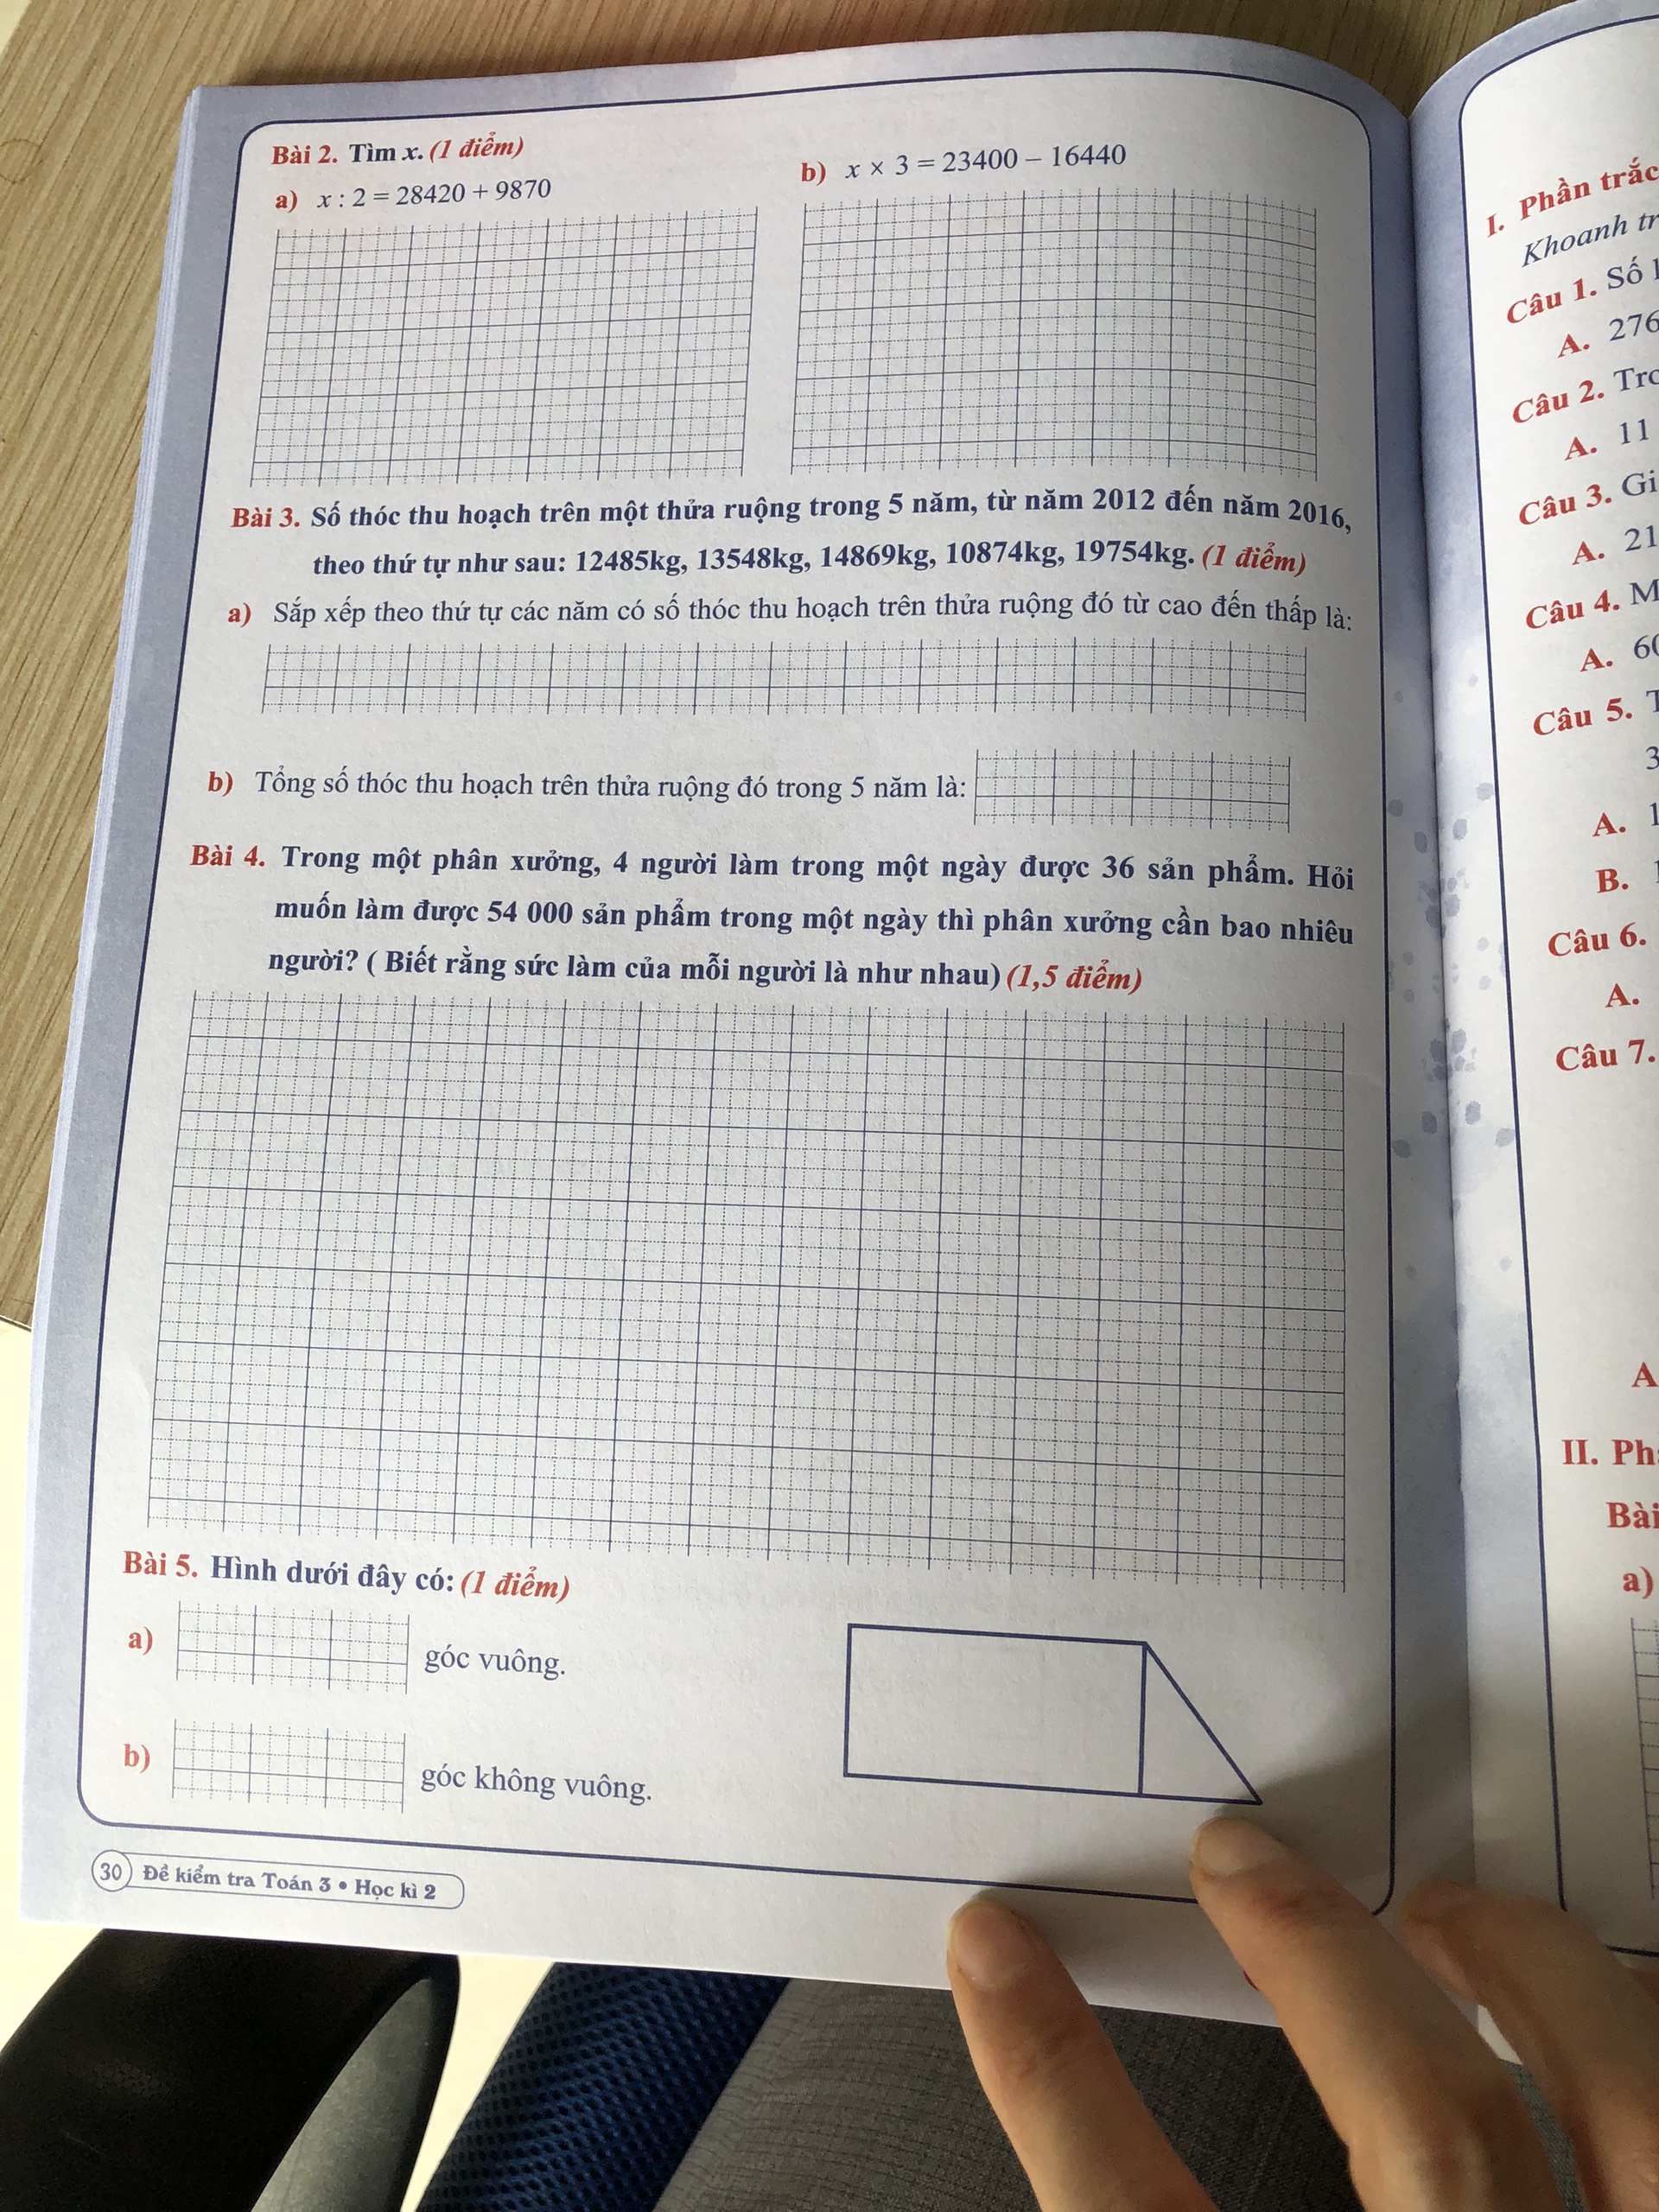 Bài 2. Tìm x. (1 điểm)
a) x : 2 = 28420 + 9870
b) x × 3 = 23400 – 16440
Bài 3. Số thóc thu hoạch trên một thửa ruộng trong 5 năm, từ năm 2012 đến năm 2016,
theo thứ tự như sau: 12485kg, 13548kg, 14869kg, 10874kg, 19754kg. (1 điểm)
a) Sắp xếp theo thứ tự các năm có số thóc thu hoạch trên thửa ruộng đó từ cao đến thấp là:
b) Tổng số thóc thu hoạch trên thửa ruộng đó trong 5 năm là:
Bài 4. Trong một phân xưởng, 4 người làm trong một ngày được 36 sản phẩm. Hỏi
muốn làm được 54 000 sản phẩm trong một ngày thì phân xưởng cần bao nhiêu
người? ( Biết rằng sức làm của mỗi người là như nhau) (1,5 điểm)
Bài 5. Hình dưới đây có: (1 điểm)
a) góc vuông.
b) góc không vuông.
30 Đề kiểm tra Toán 3 • Học kì 2
I. Phần trắc
Khoanh tr
Câu 1. Số
A. 276
Câu 2. Trc
A. 11
Câu 3. Gi
A. 21
Câu 4. M
A. 60
Câu 5. T
3
A. 1
B.
Câu 6.
A.
Câu 7.
A
II. Ph
Bài
a)